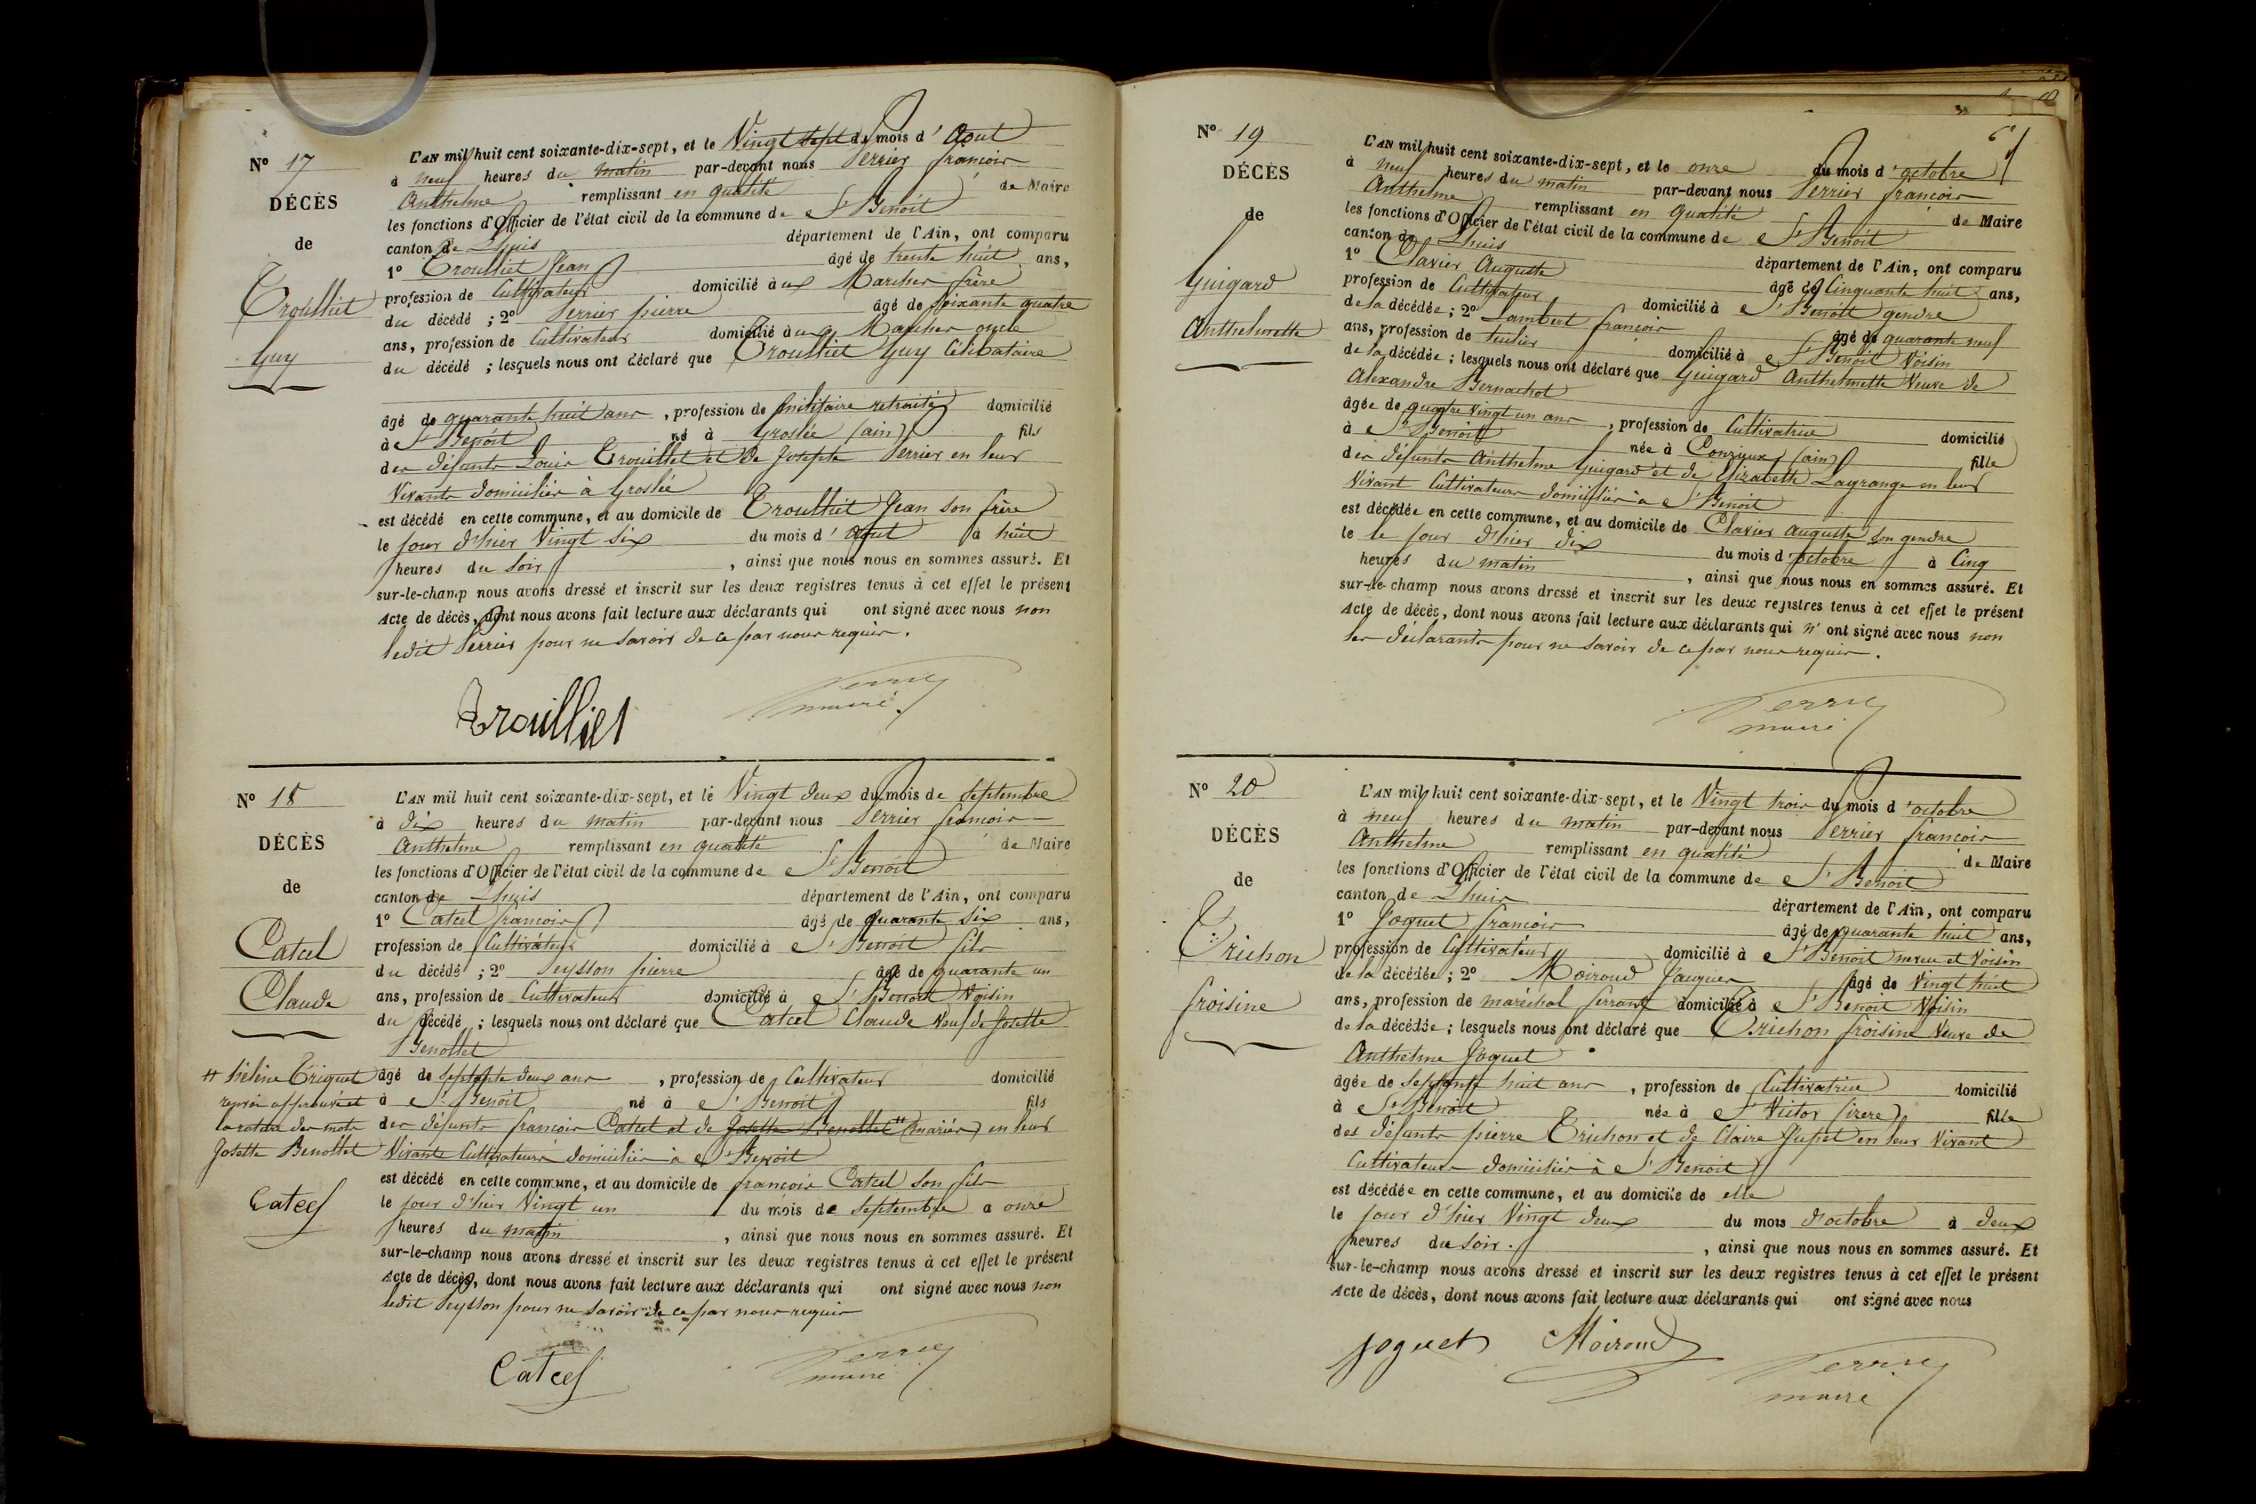 N° 17
DÉCÈS
de
Trouilliet
Guy
L'AN mil huit cent soixante-dix-sept, et le Vingt sept du mois d'Aout
à neuf heures du matin par-devant nous Perrier françois
Anthelme remplissant en qualité de Maire
les fonctions d'Officier de l'état civil de la commune de St Benoit
canton de Lhuis département de l'Ain, ont comparu
1° Trouilliet Jean âgé de trente huit ans,
profession de Cultivateur domicilié aux Marches frère
du décédé ; 2° Perrier pierre âgé de soixante quatre
ans, profession de Cultivateur domicilié aux Marches oncle
du décédé ; lesquels nous ont déclaré que Trouilliet Guy Célibataire
âgé de quarante huit ans, profession de militaire retraité domicilié
à St Benoit né à Groslée (ain) fils
des défunts Louis Trouilliet et de Josephte Perrier en leur
Vivants domiciliés à Groslée
est décédé en cette commune, et au domicile de Trouilliet Jean son frère
le jour d'hier Vingt six du mois d'Aout à huit
heures du soir, ainsi que nous nous en sommes assuré. Et
sur-le-champ nous avons dressé et inscrit sur les deux registres tenus à cet effet le présent
Acte de décès, dont nous avons fait lecture aux déclarants qui ont signé avec nous non
ledit Perrier pour ne savoir de ce par nous requis.
Trouilliet
Perrier
maire
N° 18
DÉCÈS
de
Catcel
Claude
L'AN mil huit cent soixante-dix-sept, et le Vingt deux du mois de Septembre
à dix heures du matin par-devant nous Perrier françois
Anthelme remplissant en qualité de Maire
les fonctions d'Officier de l'état civil de la commune de St Benoit
canton de Lhuis département de l'Ain, ont comparu
1° Catcel françois âgé de quarante six ans,
profession de Cultivateur domicilié à St Benoit fils
du décédé ; 2° Peysson pierre âgé de quarante un
ans, profession de Cultivateur domicilié à St Benoit Voisin
du décédé ; lesquels nous ont déclaré que Catcel Claude Veuf de Josette
Benollet
âgé de septante deux ans, profession de Cultivateur domicilié
à St Benoit né à St Benoit fils
des défunts françois Catcel et de Josette Benollet # (mariés) en leur
Vivants Cultivateurs domiciliés à St Benoit
est décédé en cette commune, et au domicile de françois Catcel son fils
le jour d'hier Vingt un du mois de Septembre à onze
heures du matin, ainsi que nous nous en sommes assuré. Et
sur-le-champ nous avons dressé et inscrit sur les deux registres tenus à cet effet le présent
Acte de décès, dont nous avons fait lecture aux déclarants qui ont signé avec nous non
ledit Peysson pour ne savoir de ce par nous requis
# Triquet
renvoi approuvé et
la rature des mots
Josette Benollet
Catcel
Catcel
Perrier
maire
61
N° 19
DÉCÈS
de
Guigard
Anthelmette
L'AN mil huit cent soixante-dix-sept, et le onze du mois d'octobre
à neuf heures du matin par-devant nous Perrier françois
Anthelme remplissant en qualité de Maire
les fonctions d'Officier de l'état civil de la commune de St Benoit
canton de Lhuis département de l'Ain, ont comparu
1° Clavier Auguste âgé de Cinquante huit ans,
profession de Cultivateur domicilié à St Benoit gendre
de la décédée ; 2° Lambert françois âgé de quarante neuf
ans, profession de tuilier domicilié à St Benoit Voisin
de la décédée ; lesquels nous ont déclaré que Guigard Anthelmette Veuve de
Alexandre Bernachot
âgée de quatre vingt un ans, profession de Cultivatrice domicilié
à St Benoit née à Conzieux (ain) fille
des défunts Anthelme Guigard et de Elizabeth Lagrange en leur
Vivant Cultivateurs domiciliés à St Benoit
est décédée en cette commune, et au domicile de Clavier Auguste son gendre
le le jour d'hier dix du mois d'octobre à Cinq
heures du matin, ainsi que nous nous en sommes assuré. Et
sur-le-champ nous avons dressé et inscrit sur les deux registres tenus à cet effet le présent
Acte de décès, dont nous avons fait lecture aux déclarants qui n'ont signé avec nous non
les déclarants pour ne savoir de ce par nous requis.
Perrier
maire
N° 20
DÉCÈS
de
Trichon
froisine
L'AN mil huit cent soixante-dix-sept, et le Vingt trois du mois d'octobre
à neuf heures du matin par-devant nous Perrier françois
Anthelme remplissant en qualité de Maire
les fonctions d'Officier de l'état civil de la commune de St Benoit
canton de Lhuis département de l'Ain, ont comparu
1° Joguet françois âgé de quarante huit ans,
profession de Cultivateur domicilié à St Benoit neveu et Voisin
de la décédée ; 2° Moiroud Jacques âgé de Vingt huit
ans, profession de maréchal ferrant domicilié à St Benoit Voisin
de la décédée ; lesquels nous ont déclaré que Trichon froisine Veuve de
Anthelme Joguet
âgée de septante huit ans, profession de Cultivatrice domicilié
à St Benoit née à St Victor (izere) fille
des défunts pierre Trichon et de Claire Jupet en leur Vivant
Cultivateurs domiciliés à St Benoit
est décédée en cette commune, et au domicile de elle
le jour d'hier Vingt deux du mois d'octobre à deux
heures du soir., ainsi que nous nous en sommes assuré. Et
sur-le-champ nous avons dressé et inscrit sur les deux registres tenus à cet effet le présent
Acte de décès, dont nous avons fait lecture aux déclarants qui ont signé avec nous
Joguet Moiroud
Perrier
maire